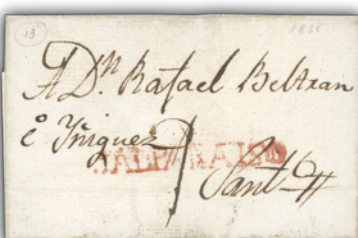 13
A Dn. Rafael Beltran
è Yñiguez
VALPARAISO
Sant